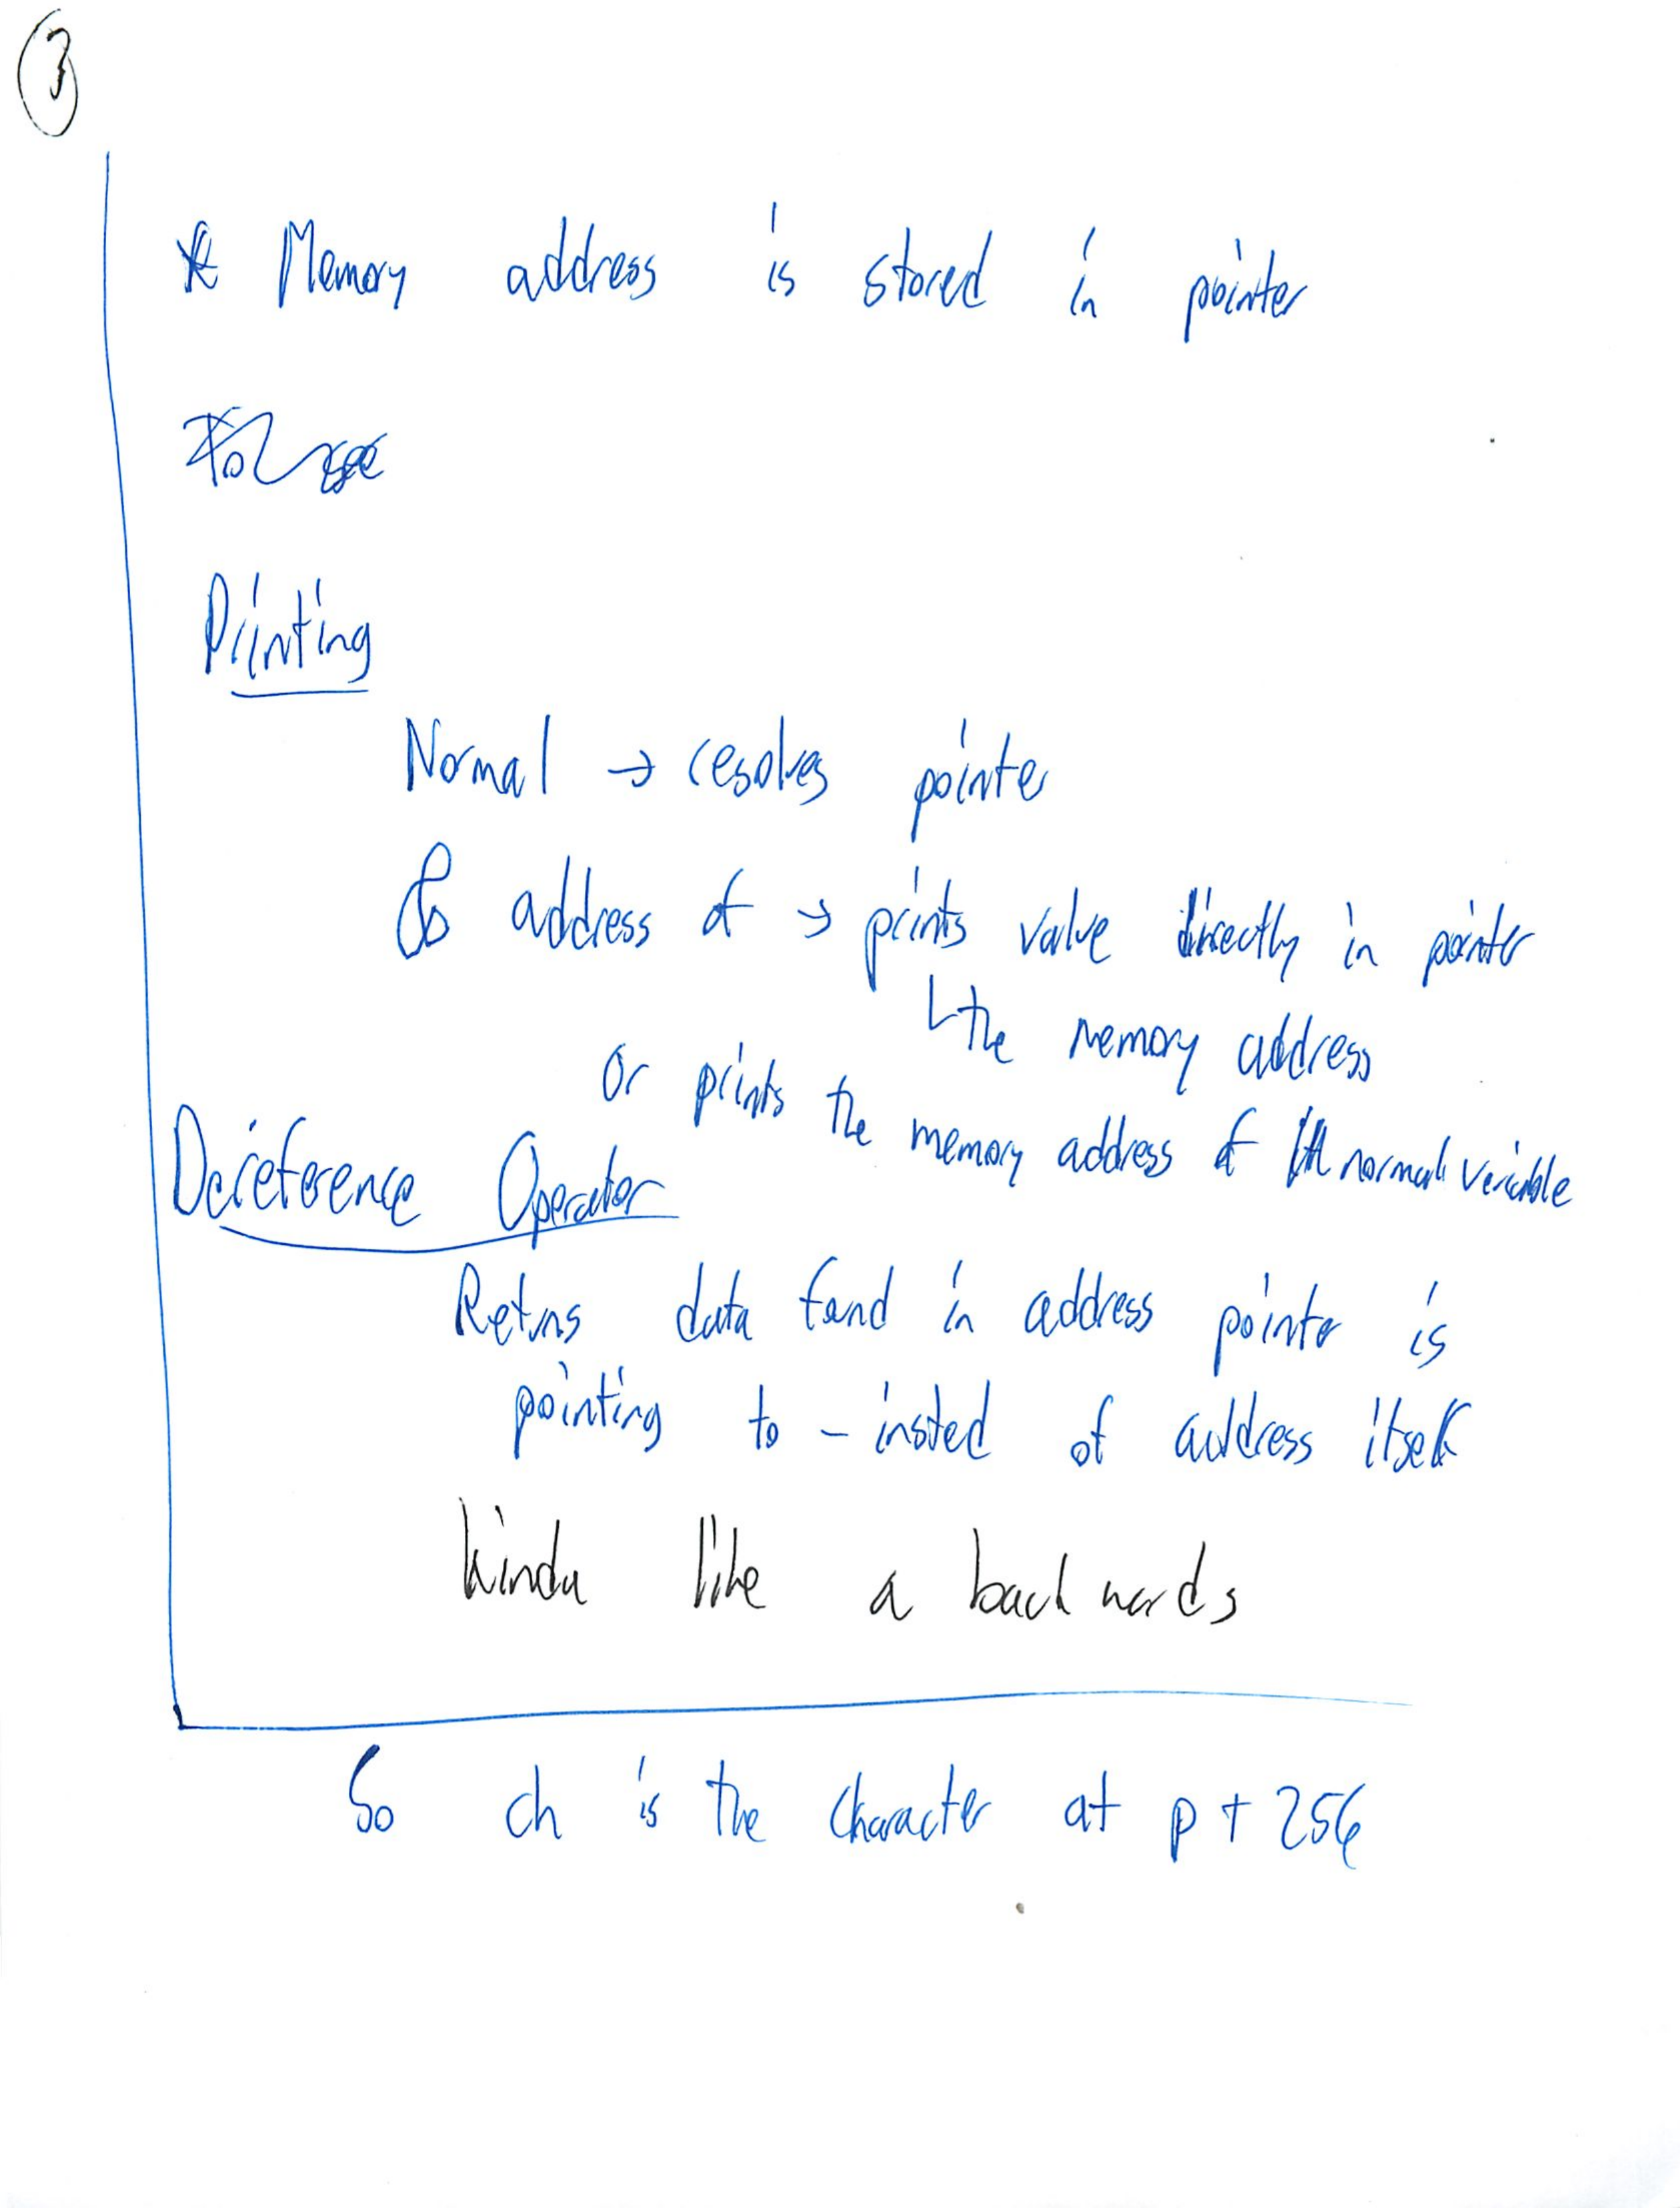 3
* Memory address is stored in pointer
Printing
Normal → resolves pointer
& address of → prints value directly in pointer
↳ the memory address
or prints the memory address of normal variable
Dereference Operator
Returns data found in address pointer is
pointing to - insted of address itself
kinda like a backwards
So ch is the character at p + 256